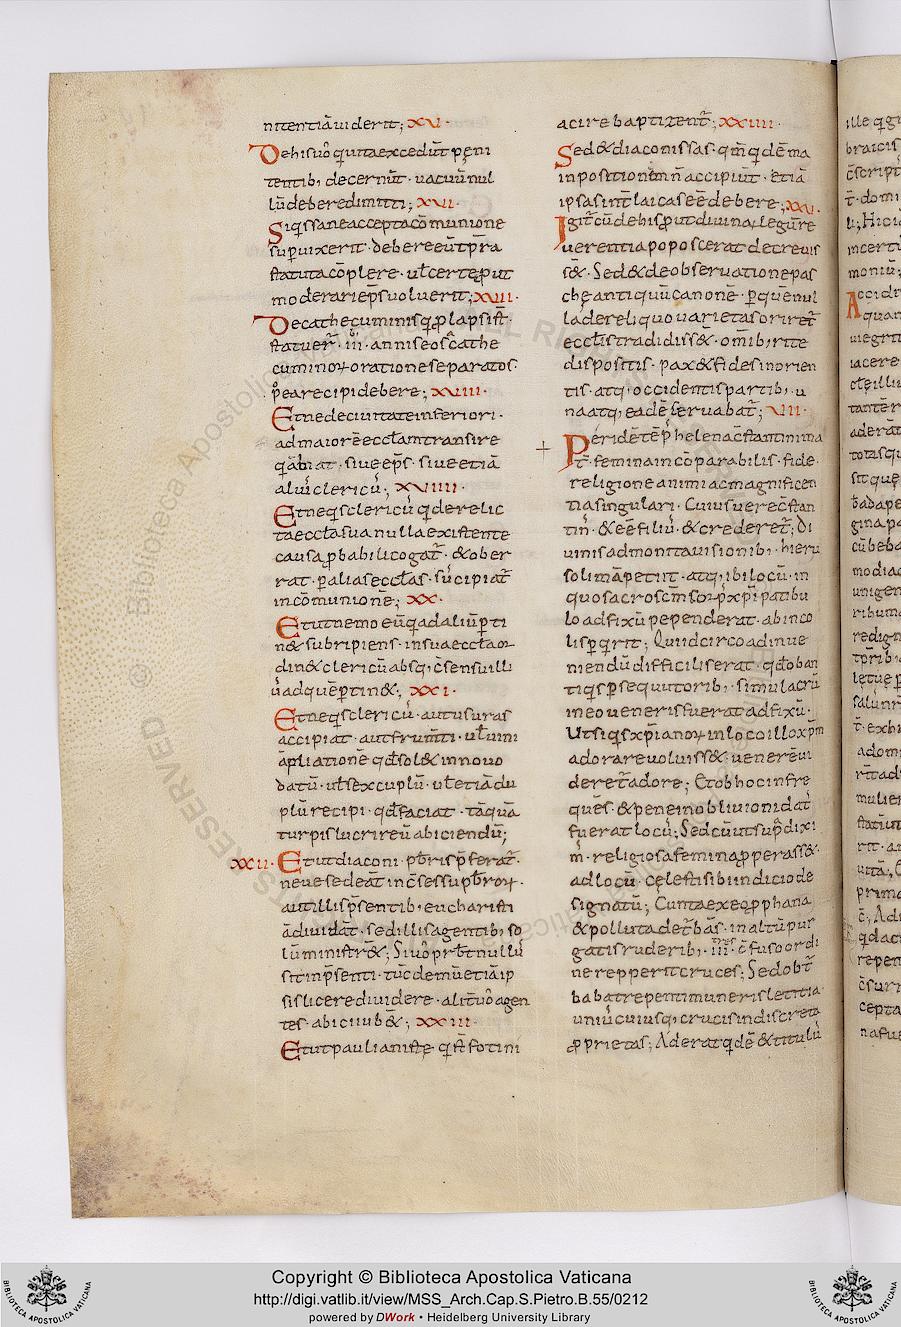 nitentiā uiderit; XVI·
De his uō qui uita excedūt peni
tentib; decernūt· uacuū nul
lū debere dimitti; XVII·
Siqs sane accepta cōmunione
supuixerit· debere eū tp̄ra
statuta cōplere· ut certe put
moderari ep̄s uoluerit; XVIII·
De cathecuminis q plapsi st̄·
statuer̄· III· annis eos cathe
cuminoꝝ oratione separatos·
pea recipi debere; XVIIII·
Et ne de ciuitate inferiori·
ad maiorē eccl̄am transire
q ābiat· siue ep̄s· siue etiā
alius clericus; XVIIII·
Et ne qs clericū q derelic
ta eccl̄a sua nulla existente
causa pbabili cogat̄· & ober
rat· p alias eccl̄as· suscipiat̄
in cōmunionē; XX·
Et ut nemo eū q ad aliū pti
n& subripiens· in sua eccl̄a or
din& clericū absq; c̄sensu illi
us ad quē ptin&; XXI·
Et ne qs clericus· aut usuras
accipiat· aut frumti· ut uini
āpliationē qd sol& in nouo
datū· ut sexcuplū· ut etiā du
plū recipi· qd faciat· tāquā
turpis lucri reū abiciendū;
XXII· Et ut diaconi· pb̄ris p̄ferat̄·
neue sedeāt in c̄sessu pb̄roꝝ·
aut illis p̄sentib; eucharisti
ā diuidāt· sed illis agentib; so
lū ministr&; Si uō prb̄t nullus
sit in p̄senti· tūc demū etiā ip
sis licere diuidere· alit̄ uō agen
tes· abici iub&; XXIII·
Et ut paulianiste· q st̄ fotini
aci rebaptizent̄; XXIIII·
Sed & diaconissas· qm̄ qdē ma
inpositionē n̄ accipiūt· etiā
ipsas int̄ laicas eē debere; XXV·
Igit̄ cū de his put diuinaꝝ legū re
uerentia poposcerat decreuis
s&· Sed & de obseruatione pas
che antiquū canonē· p quē nul
la de reliquo uarietas oriret̄
eccl̄is tradidiss&· om̄ib; rite
dispositis· pax & fides in orien
tis· atq; occidentis partib; u
na atq; eadē seruabat̄; VII·
Per idē tēp helena c̄stantini ma
t̄· femina incōparabilis· fide·
religione animi ac magnificen
tia singulari· Cuius uere c̄stan
tin̄· & eē filius & crederet̄; Di
uinis admonita uisionib; hieru
solimā petiit· atq; ibi locū· in
quo sacroscm̄ corp xp̄i patibu
lo adfixū pependerat· ab inco
lis pqrit; Qui idcirco ad inue
niendū difficilis erat· qd ob an
tiqs psequutorib; simulacrū
in eo ueneris fuerat adfixū·
Ut siqs xp̄ianoꝝ in loco illo xp̄m
adorare uoluiss& uenerē ui
deret̄ adore; Et ob hoc infre
quēs· & pene in obliuioni dat̄
fuerat locus; Sed cū ut sup̄ dixi
m̄· religiosa femina pperass&
ad locū· celesti sibi indicio de
signatū; Cuncta ex eo pphana
& polluta det̄bās· in altū pur
gatis ruderib; III· c̄fuso ordi
ne repperit cruces; Sed obt̄
babat repertimuneris letitiā
uniuscuiusq; crucis indiscreta
pprietas; Aderat qdē & titulus
Copyright © Biblioteca Apostolica Vaticana
http://digi.vatlib.it/view/MSS_Arch.Cap.S.Pietro.B.55/0212
powered by DWork • Heidelberg University Library